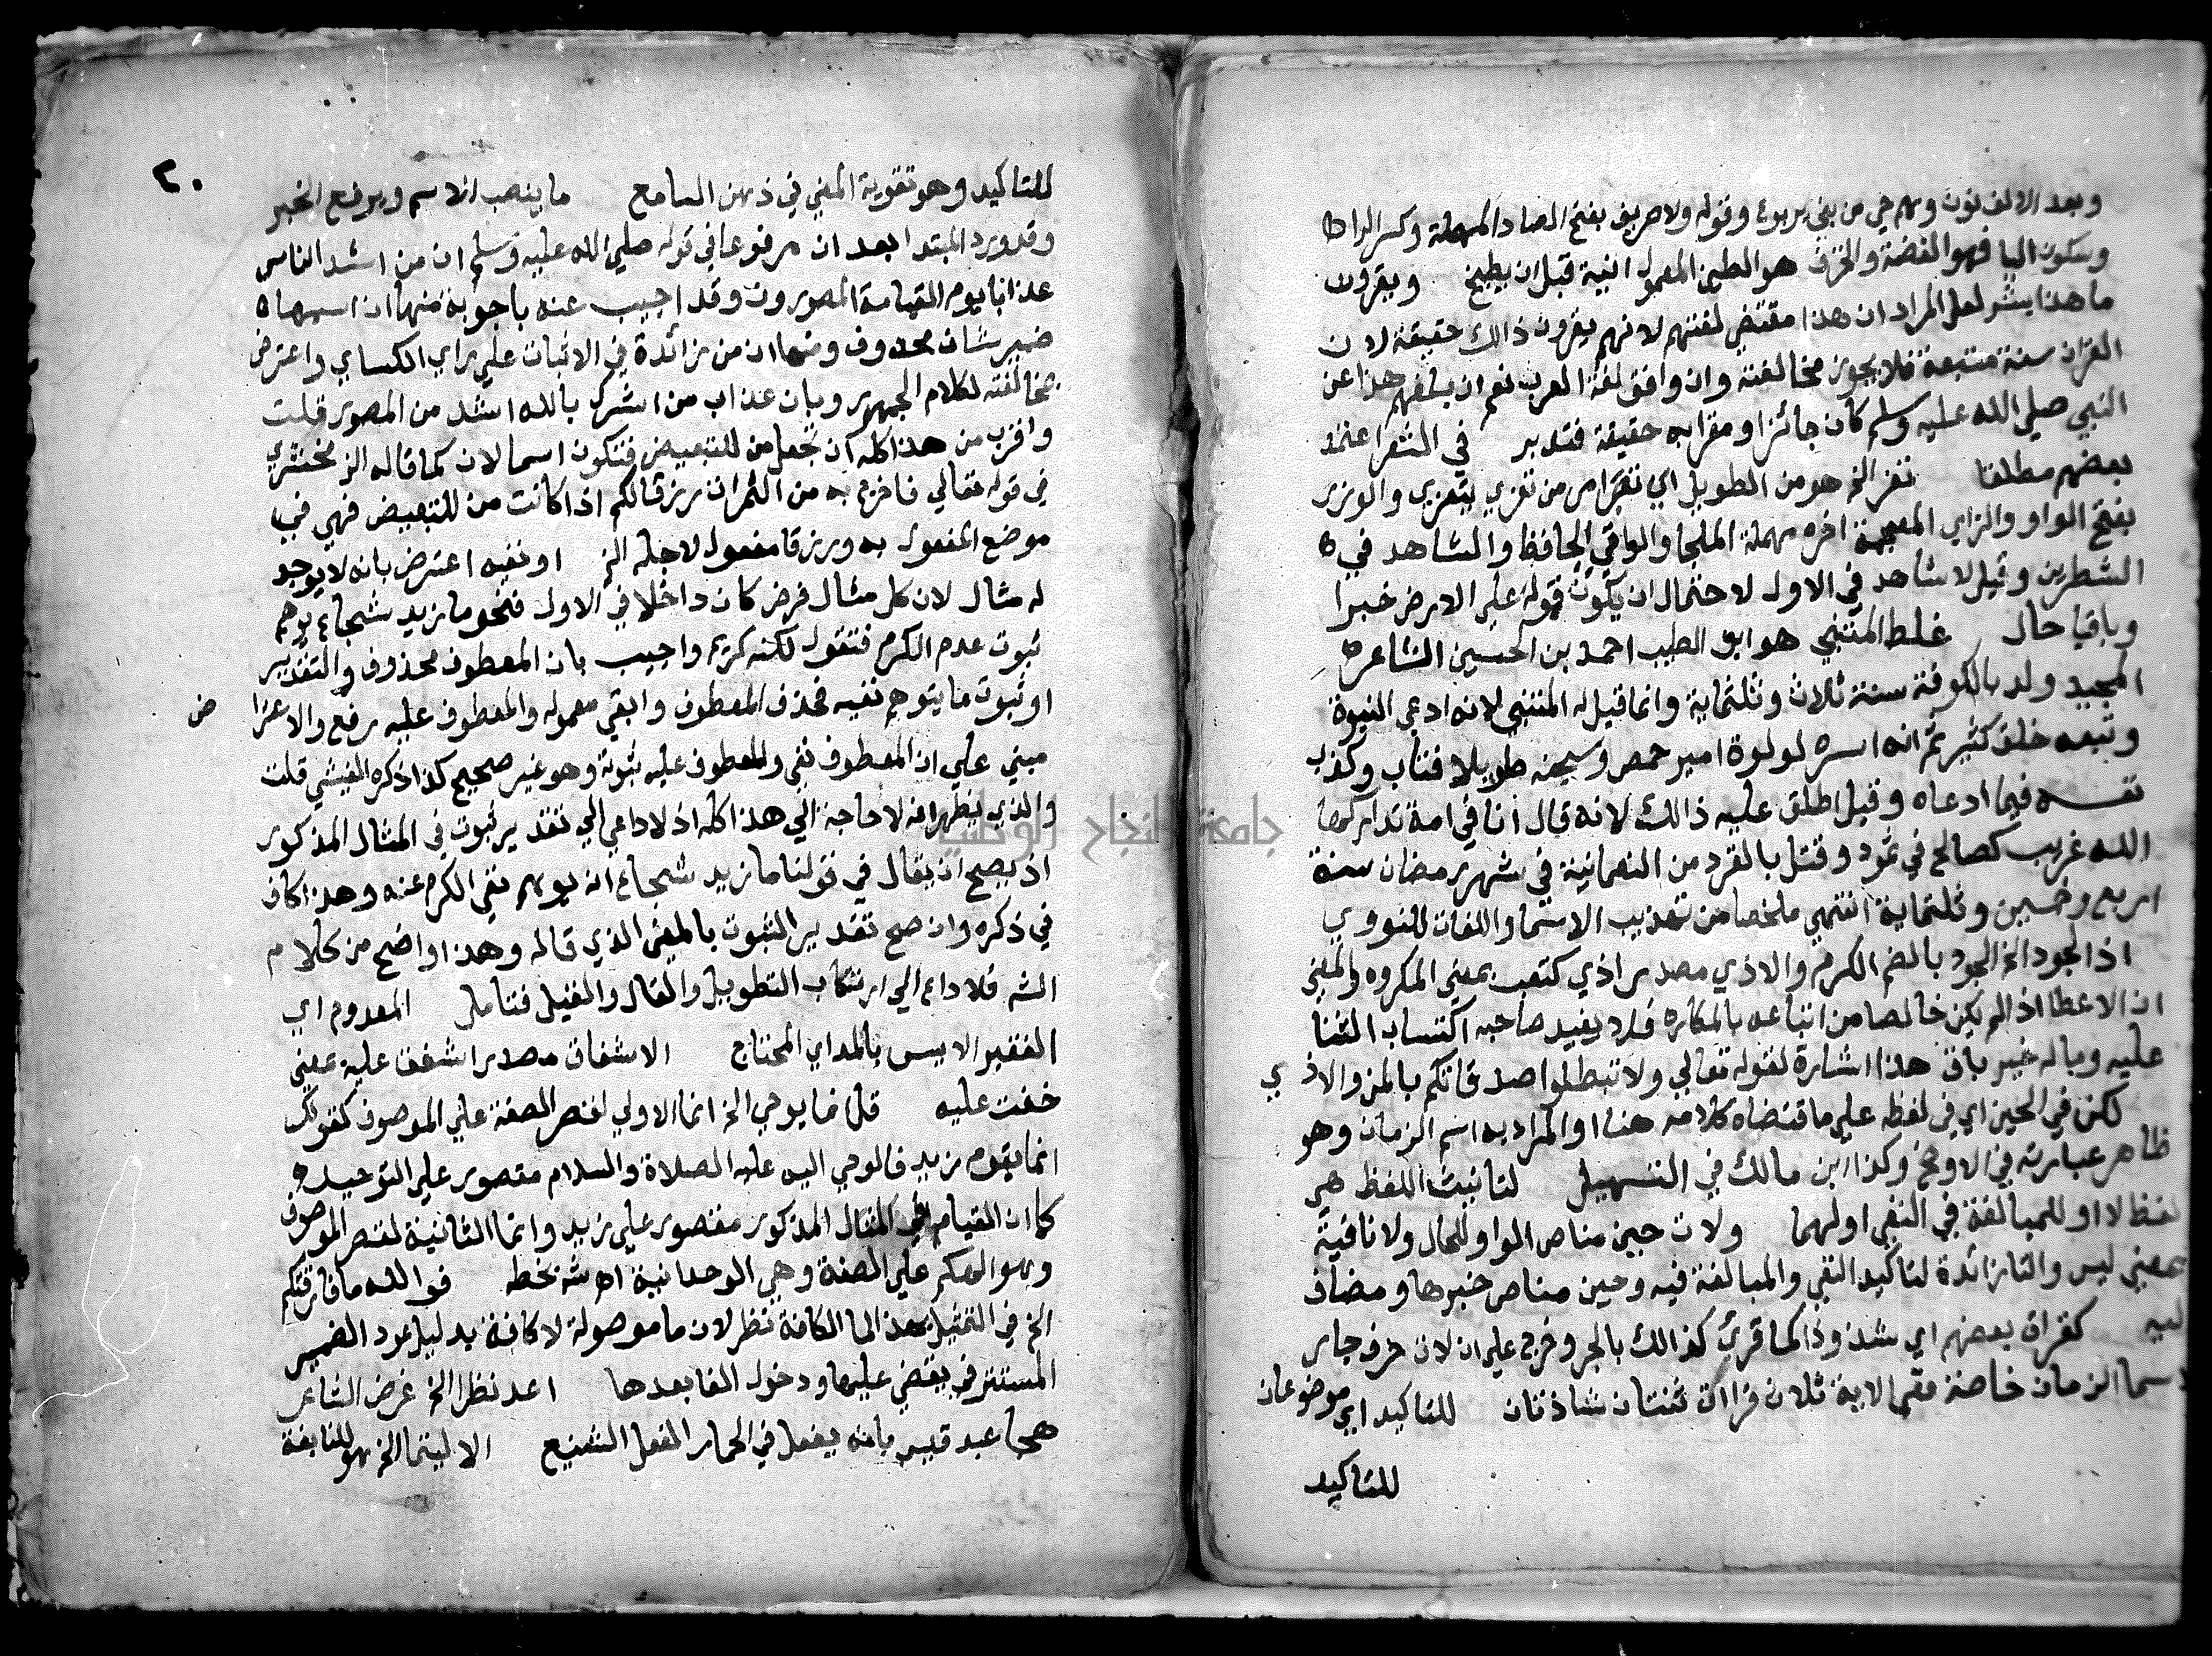 وبعد الالف نون وهم حي من بني يربوع وقوله ولا صريف بفتح الصاد المهملة وكسر الرا
وسكون اليا فهو الفضة والخزف هو الطين المعمول انية قبل ان يطبخ ويقرون
ما هذا بشر لعل المراد ان هذا مقتضي لغتهم لا انهم يقرون ذالك حقيقة لان
القران سنة متبعة فلا يجوز مخالفته وان وافق لغة العرب نعم ان بلغهم هذا عن
النبي صلي الله عليه وسلم كان جائزا ومقرا به حقيقة فتدبر في الشعر اعند
بعضهم مطلقا تعز الخ هو من الطويل اي تعز امر من تعزي يتعزي والوزر
بفتح الواو والزاي المعجمة اخره مهملة الملجا والواقي الحافظ والشاهد في
الشطرين وقيل لا شاهد في الاول لاحتمال ان يكون قوله علي الارض خبرا
وباقيا حال غلط المتنبي هو ابو الطيب احمد بن الحسين الشاعر
المجيد ولد بالكوفة سنة ثلاث وثلثماية وانما قيل له المتنبي لانه ادعي النبوة
وتبعه خلق كثير ثم انه اسره لولوة امير حمص وسجنه طويلا فتاب وكذب
نفسه فيما ادعاه وقيل اطلق عليه ذالك لانه قال انا في امة تداركها
الله غريب كصالح في ثمود وقتل بالقرد من النعمانية في شهر رمضان سنة
اربع وخمسين وثلثماية انتهي ملخصا من تهذيب الاسما واللغات للنووي
اذا الجود الخ الجود بالضم الكرم والاذي مصدر اذي كتعب بمعني المكروه والمعني
ان الاعطا اذا لم يكن خالصا من اتباعه بالمكاره فلا يفيد صاحبه اكتساب الثنا
عليه وماله غير باق هذا اشارة لقوله تعالي ولا تبطلوا صدقاتكم بالمن والاذي
لكن في الحين اي في لفظه علي ما قتضاه كلامه هنا او المراد به اسم الزمان وهو
ظاهر عبارته في الاوضح وكذا ابن مالك في التسهيل لتانيث اللفظ هي
لفظ لا او للمبالغة في النفي اولهما ولات حين مناص الواو للحال ولا نافية
بمعني ليس والتا زائدة لتاكيد النفي والمبالغة فيه وحين مناص خبرها ومضاف
اليه كقراة بعضهم اي شذوذا كما قرئ كذالك بالجر وخرج علي ان لات حرف جار
لاسما الزمان خاصة ففي الاية ثلاث قراات ثنتان شاذتان للتاكيد اي موضوعان
للتاكيد
٢٠
للتاكيد وهو تقوية المعني في ذهن السامع ما ينصب الاسم ويرفع الخبر
وقد ورد المبتدا بعد ان مرفوعا في قوله صلي الله عليه وسلم ان من اشد الناس
عذابا يوم القيامة المصورون وقد اجيب عنه باجوبة منها ان اسمها
ضمير شان محذوف ومنها ان من زائدة في الاثبات علي راي الكساي واعترض
بمخالفته لكلام الجمهور وبان عذاب من اشرك بالله اشد من المصور قلت
واقرب من هذا كله ان تجعل من للتبعيض فتكون اسما لان كما قاله الزمخشري
في قوله تعالي فاخرج به من الثمرات رزقا لكم اذا كانت من للتبعيض فهي في
موضع المفعول به ورزقا مفعول لاجله الخ او نفيه اعترض بانه لا يوجد
له مثال لان كل مثال فرض كان داخلا في الاول فنحو ما زيد شجاع يوهم
ثبوت عدم الكرم فتقول لكنه كريم واجيب بان المعطوف محذوف والتقدير
او ثبوت ما يتوهم نفيه فحذف المعطوف وابقي معموله والمعطوف عليه رفع والاعترا ض
مبني علي ان المعطوف نفي والمعطوف عليه ثبوته وهو غير صحيح كذا ذكره الفيشي قلت
والذي يظهر انه لا حاجة الي هذا كله اذ لا داعي الي تقدير ثبوت في المثال المذكور
اذ يصح ان يقال في قولنا ما زيد شجاع انه يوهم نفي الكرم عنه وهذا كاف
في ذكره وان صح تقدير الثبوت بالمعني الذي قاله وهذا واضح من كلام
الشه فلا داع الي ارتكاب التطويل والقال والقيل فتامل المعدوم اي
الفقير الايس بالمد اي المحتاج الاشفاق مصدر اشفق عليه بمعني
خفت عليه قل انما يوحي الخ انما الاولي لقصر الصفة علي الموصوف كقولك
انما يقوم زيد فالوحي اليه عليه الصلاة والسلام مقصور علي التوحيد
كما ان القيام في المثال المذكور مقصور علي زيد وانما الثانية لقصر الموصوف
وهو الهكم علي الصفة وهي الوحدانية اه شه بخطه فوالله ما فارقتكم
الخ في التمثيل بهذا لما الكافة نظر لان ما موصولة لا كافة بدليل عود الضمير
المستتر في يقضي عليها ودخول الفا بعدها اعد نظرا الخ غرض الشاعر
هجا عبد قيس بانه يفعل في الحمار الفعل الشنيع الا ليتما الخ هو للنابغة
جامعة النجاح الوطنية